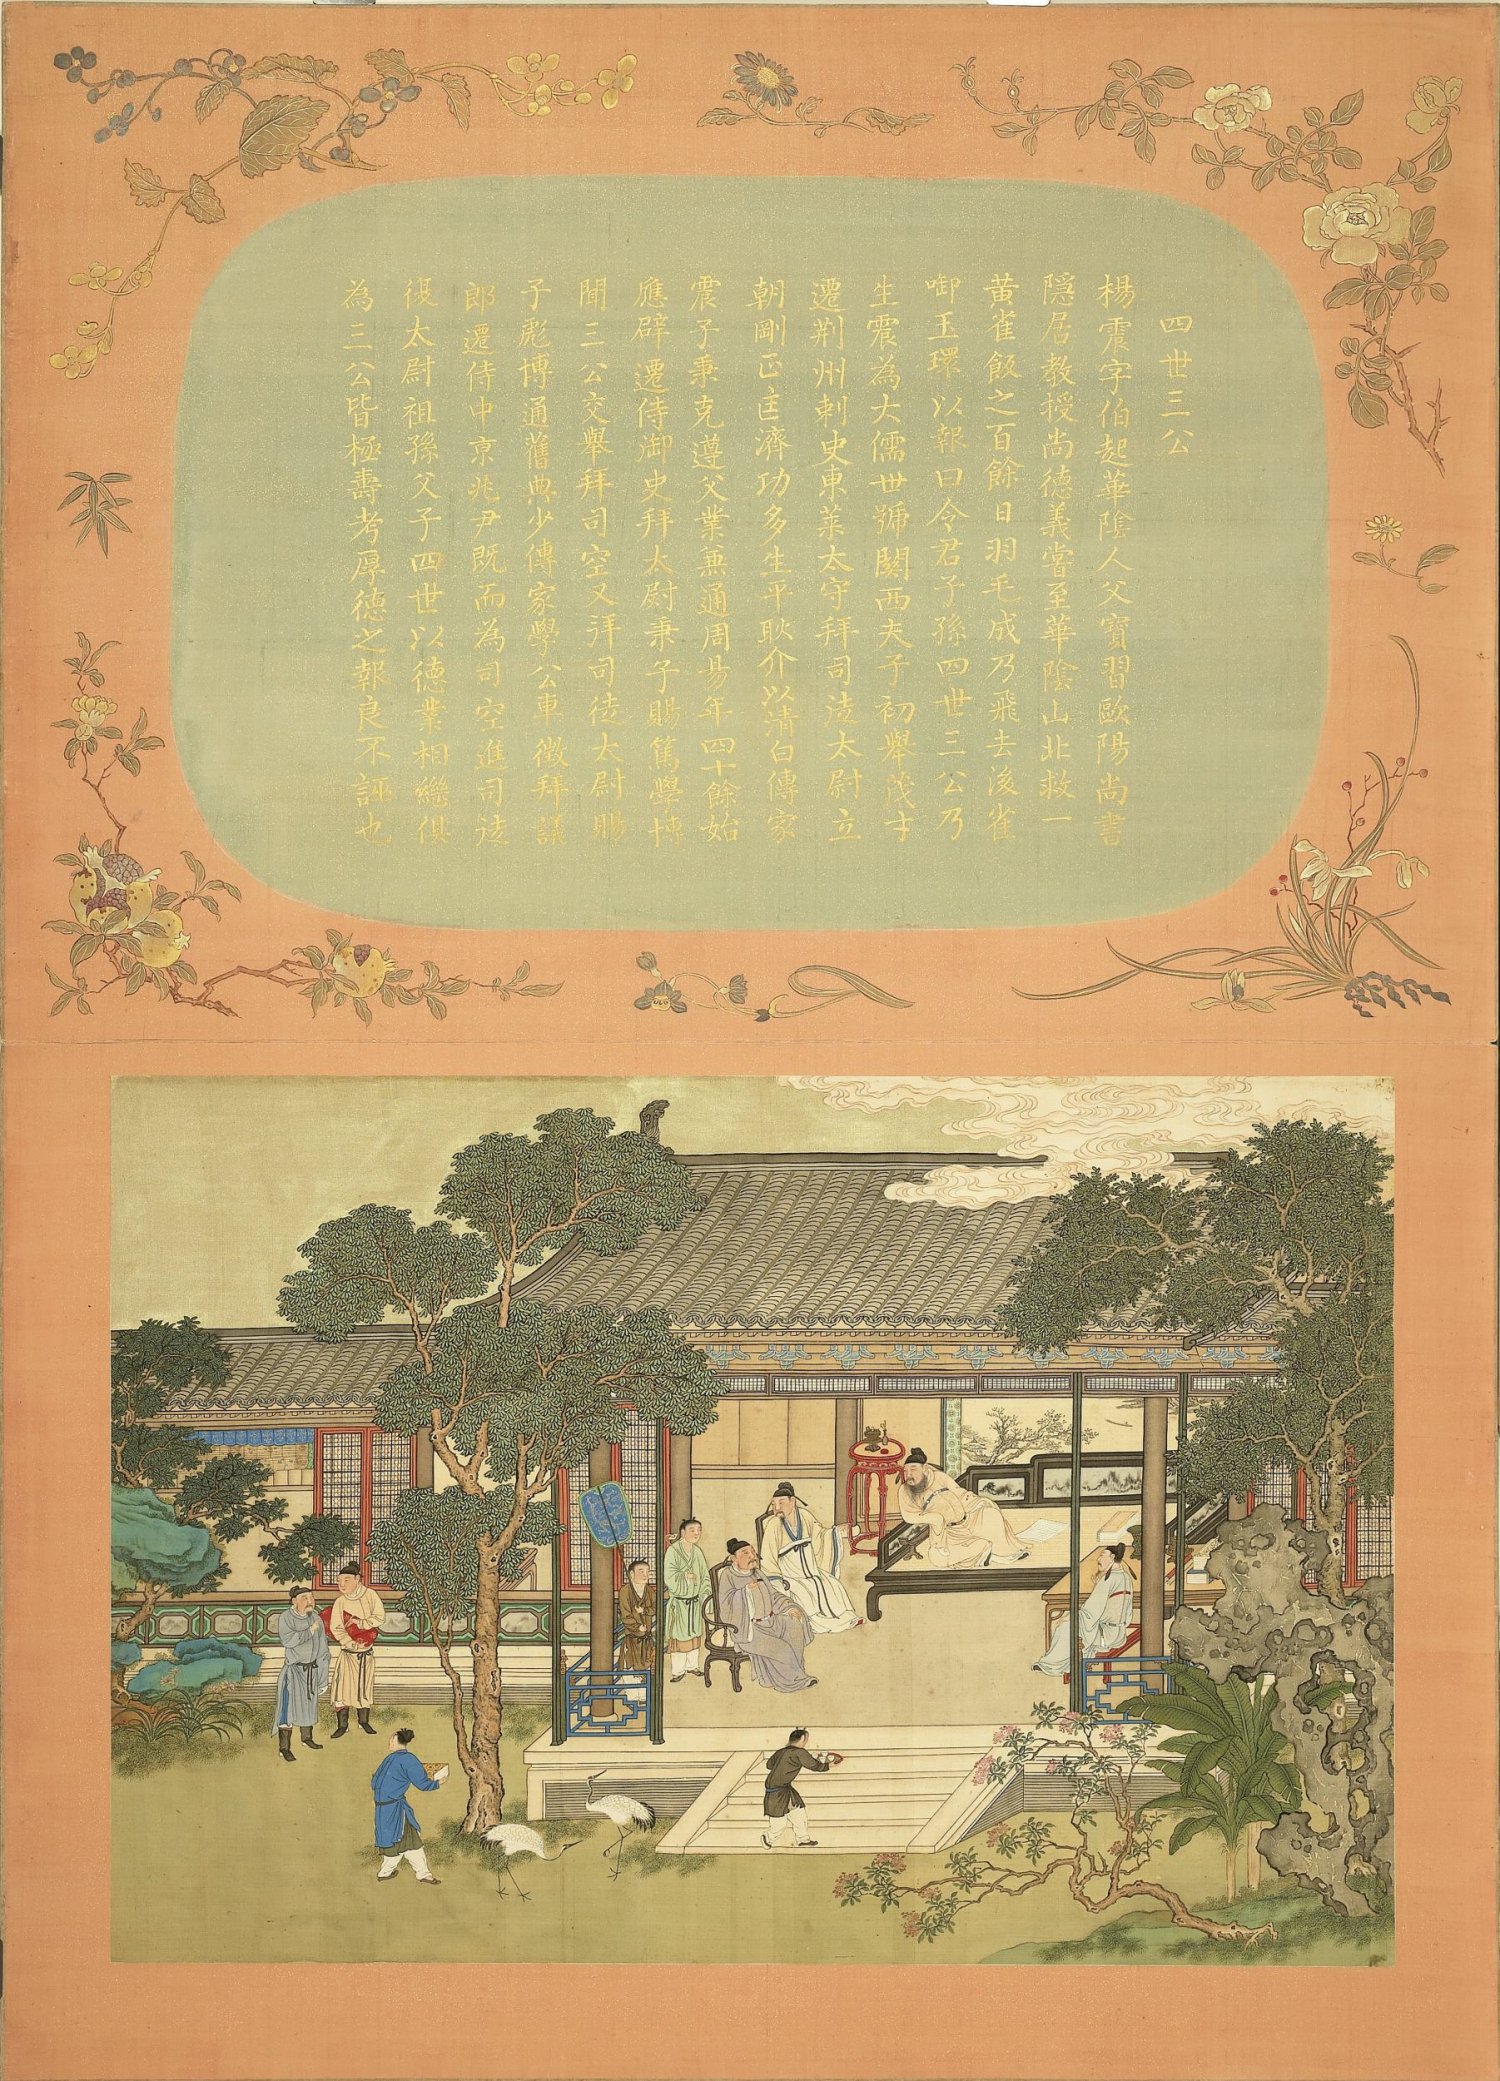 四世三公
楊震字伯起華陰人父寶習歐陽尚書
隱居教授尚德義嘗至華陰山北救一
黃雀飯之百餘日羽毛成乃飛去後雀
啣玉環以報曰令君子孫四世三公乃
生震為大儒世號關西夫子初舉茂才
遷荆州刺史東萊太守拜司徒太尉立
朝剛正匡濟功多生平耿介以清白傳家
震子秉克遵父業兼通周易年四十餘始
應辟遷侍御史拜太尉秉子賜篤學博
聞三公交舉拜司空又拜司徒太尉賜
子彪博通舊典少傳家學公車徵拜議
郎遷侍中京兆尹既而為司空進司徒
復太尉祖孫父子四世以德業相繼俱
為三公皆極壽考厚德之報良不誣也